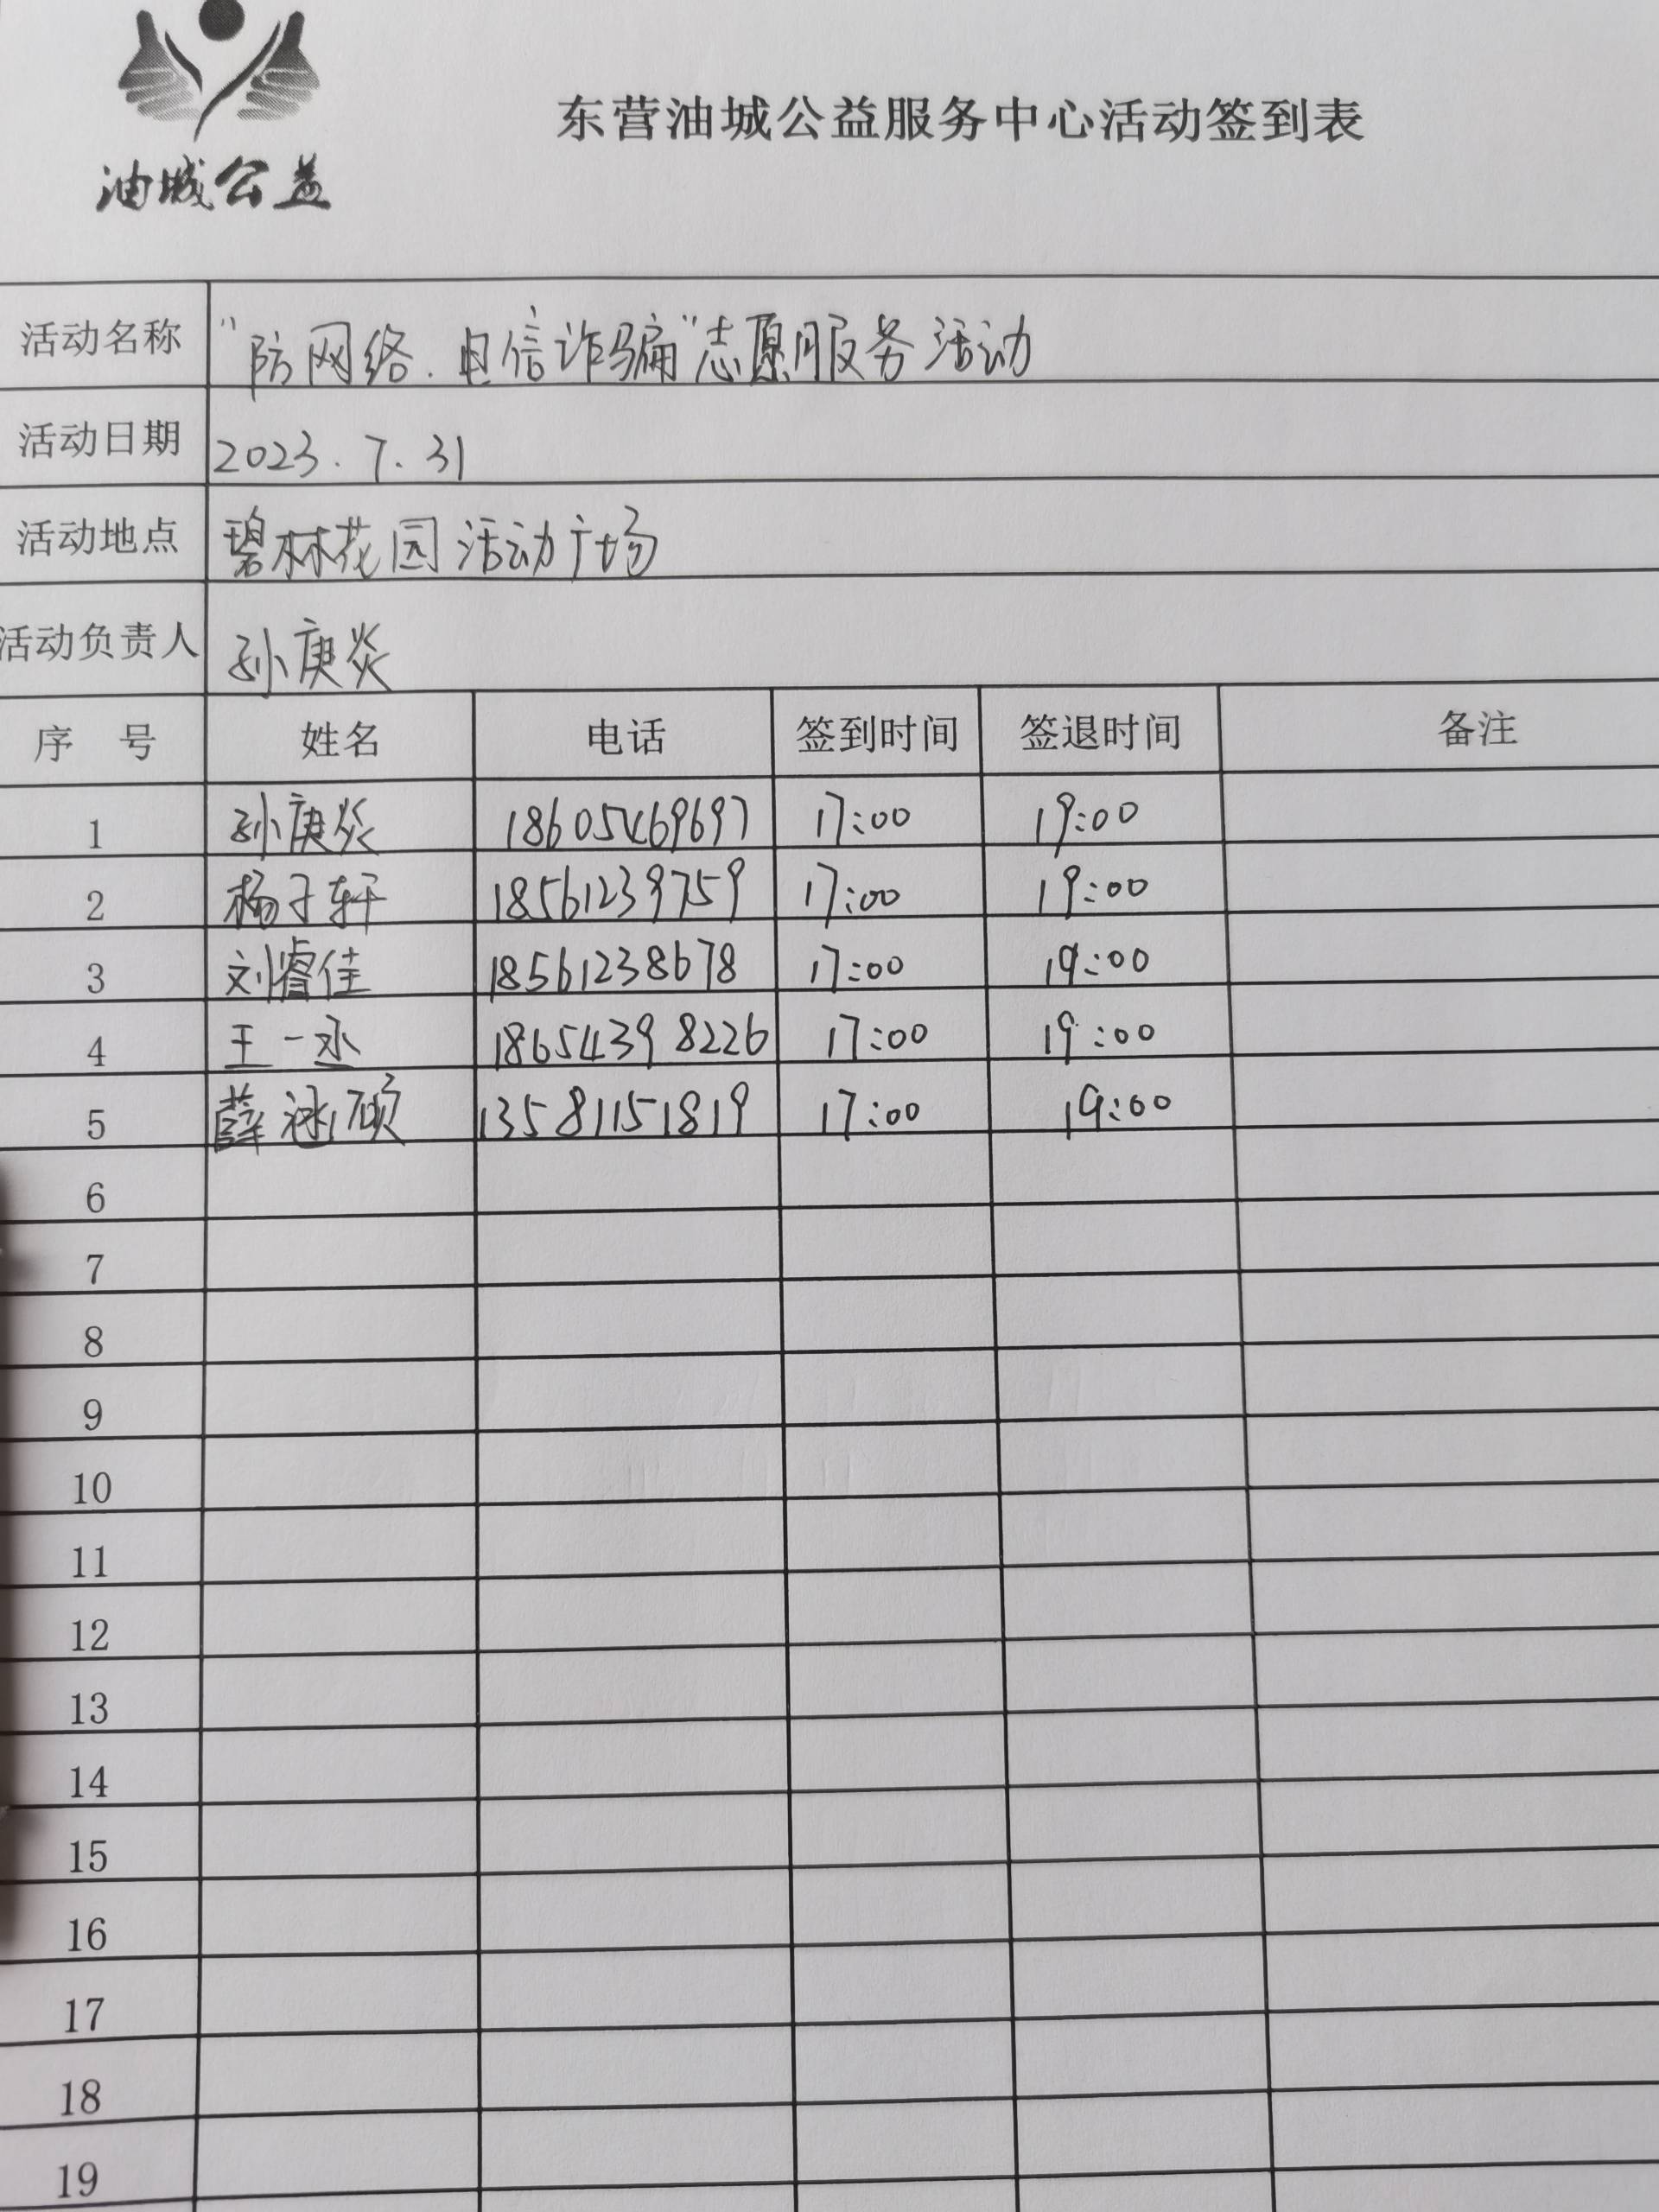 油城公益
东营油城公益服务中心活动签到表
活动名称 "防网络.电信诈骗"志愿服务活动
活动日期 2023.7.31
活动地点 碧林花园活动广场
活动负责人 孙庚炎
序 号 姓名 电话 签到时间 签退时间 备注
1 孙庚炎 18605469697 17:00 19:00
2 杨子轩 18561239759 17:00 19:00
3 刘睿佳 18561238678 17:00 19:00
4 王一丞 18654398226 17:00 19:00
5 薛涵硕 13581151819 17:00 19:00
6
7
8
9
10
11
12
13
14
15
16
17
18
19